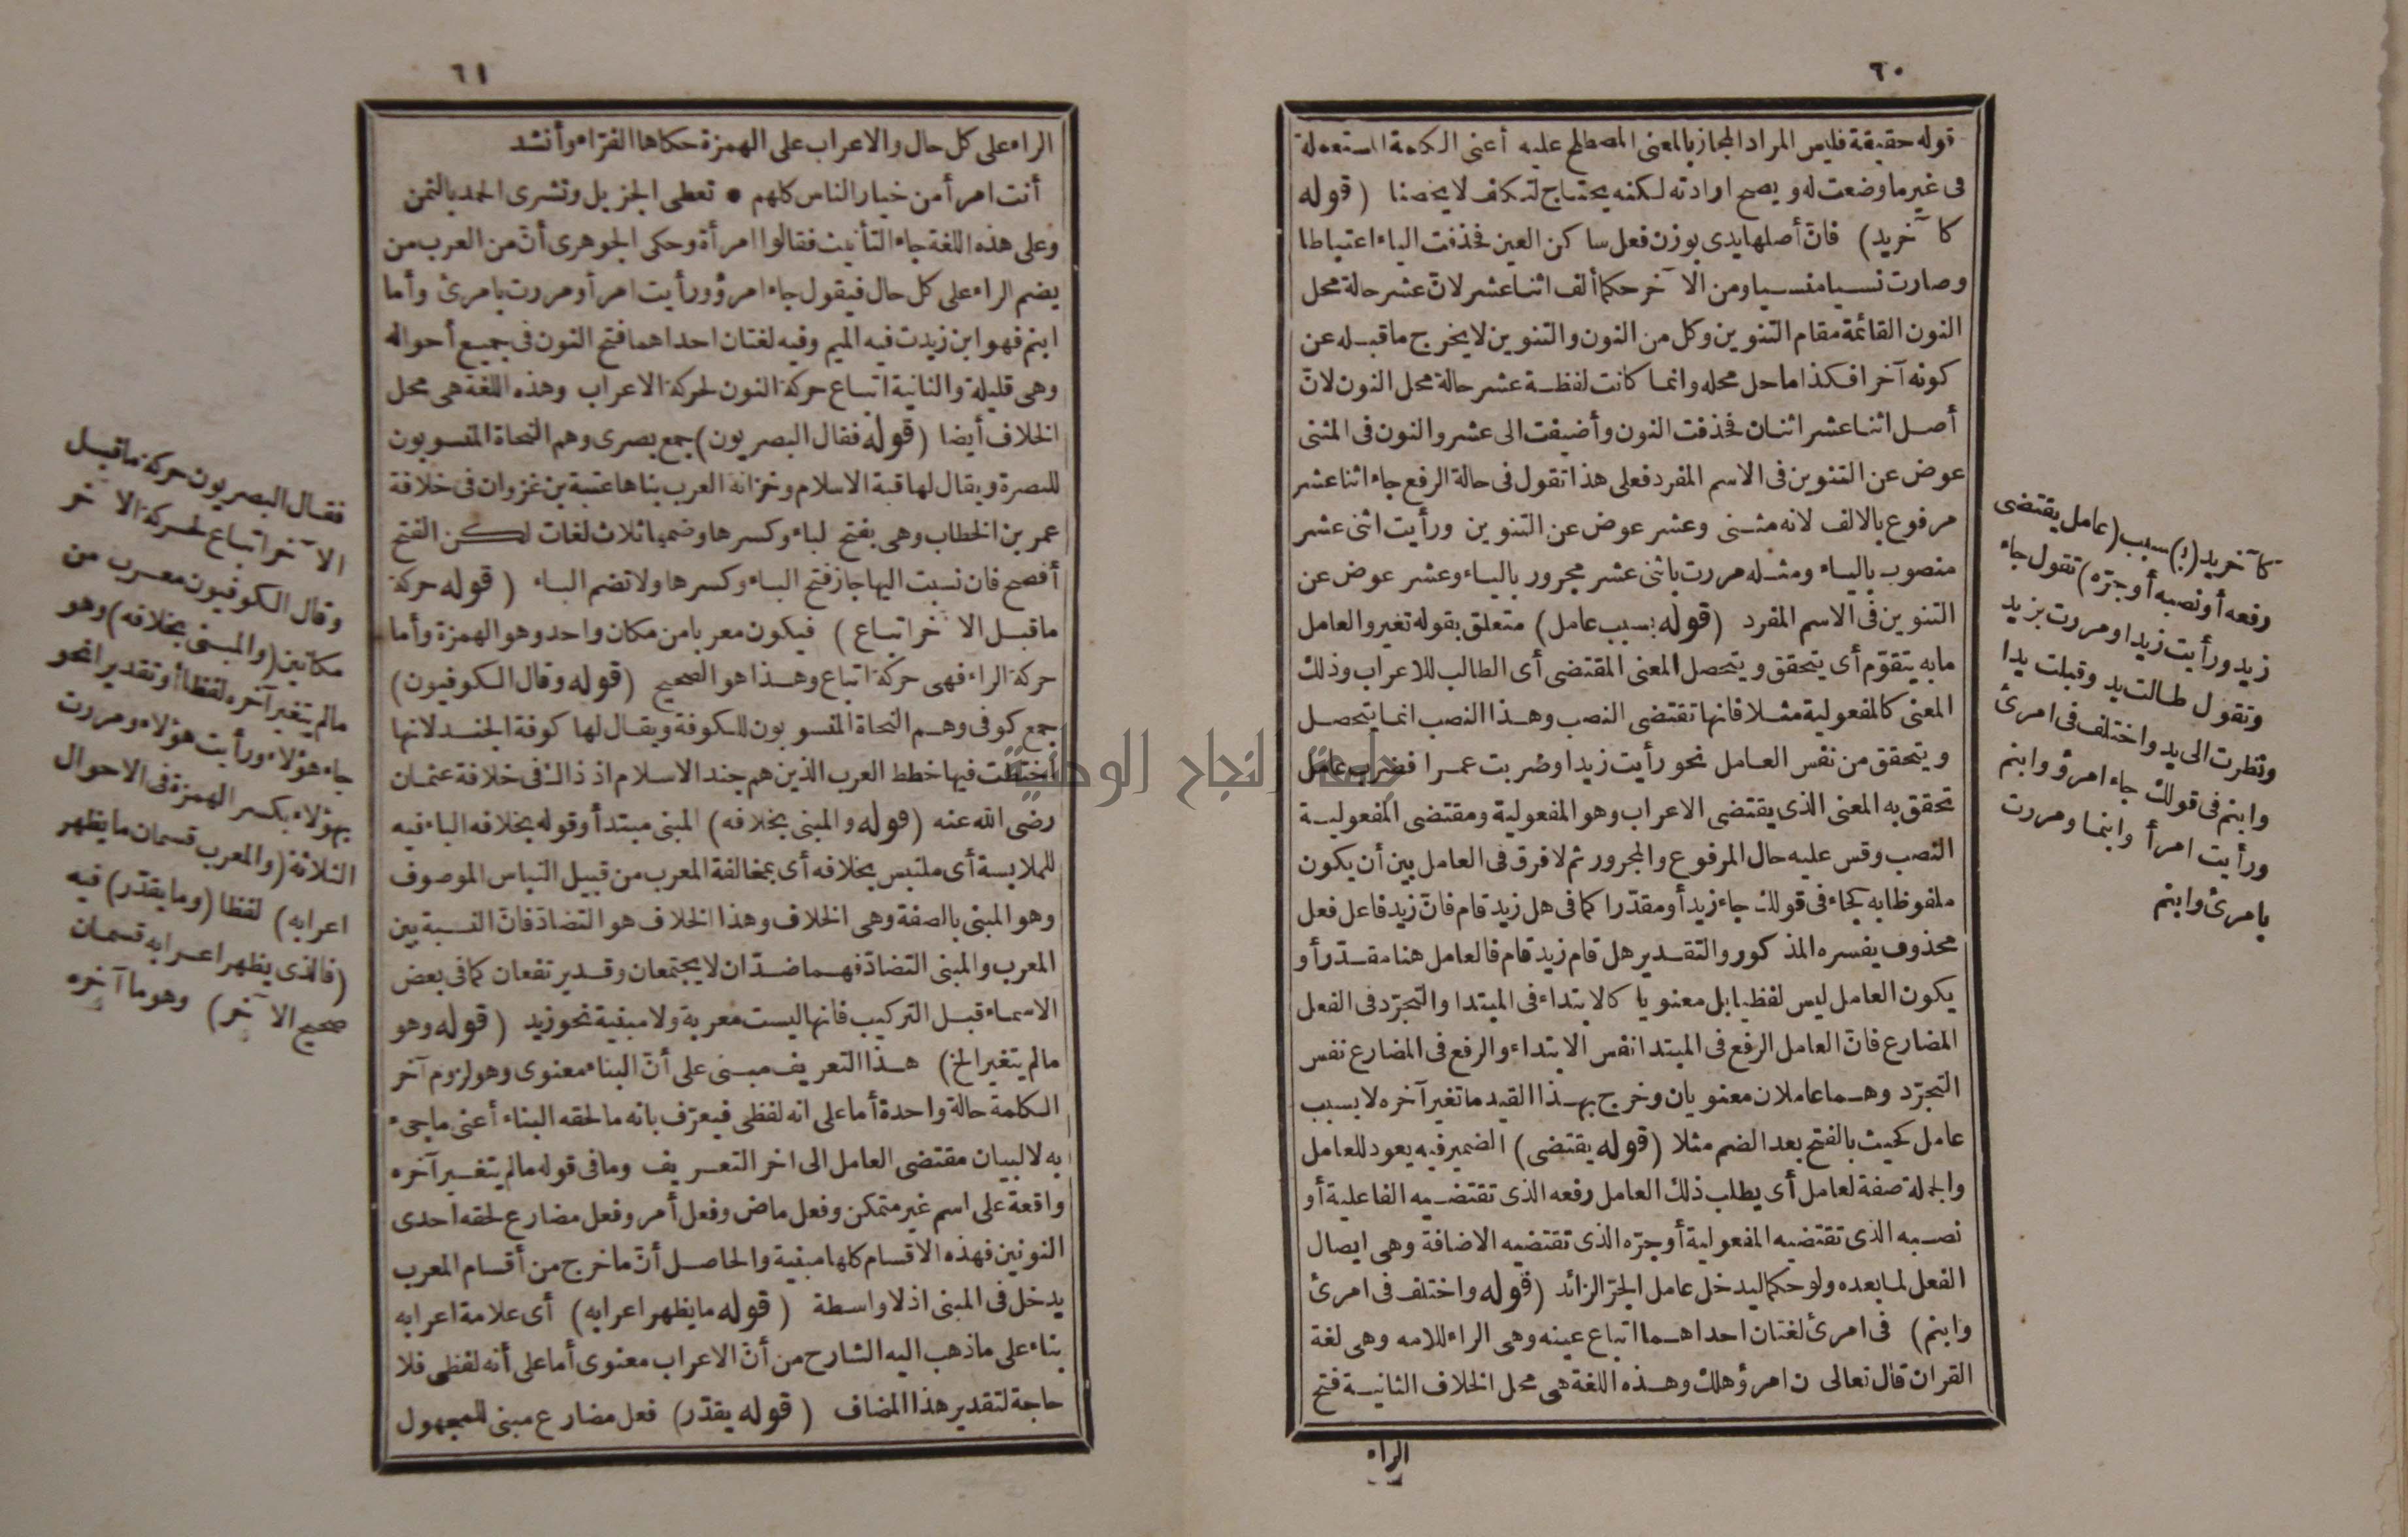 ٦٠
قوله حقيقة فليس المراد المجاز بالمعنى المصطلح عليه أعنى الكلمة المستعملة
فى غير ما وضعت له ويصح ارادته لكنه يحتاج لتكلف لا يخصنا (قوله
كا آخريد) فانّ أصلها يدى بوزن فعل ساكن العين فحذفت الياء اعتباطا
وصارت نسيا منسيا ومن الآخر حكما ألف اثنا عشر لانّ عشر حالة محل
النون القائمة مقام التنوين وكل من النون والتنوين لا يخرج ما قبله عن
كونه آخرا فكذا ما حل محله وانما كانت لفظة عشر حالة محل النون لانّ
أصل اثنا عشر اثنان فحذفت النون وأضيفت الى عشر والنون فى المثنى
عوض عن التنوين فى الاسم المفرد فعلى هذا تقول فى حالة الرفع جاء اثنا عشر
مرفوع بالالف لانه مثنى وعشر عوض عن التنوين ورأيت اثنى عشر
منصوب بالياء ومثله مررت باثنى عشر مجرور بالياء وعشر عوض عن
التنوين فى الاسم المفرد (قوله بسبب عامل) متعلق بقوله تغير والعامل
ما به يتقوّم أى يتحقق ويتحصل المعنى المقتضى أى الطالب للاعراب وذلك
المعنى كالمفعولية مثلا فانها تقتضى النصب وهذا النصب انما يتحصل
ويتحقق من نفس العامل نحو رأيت زيدا وضربت عمرا فضرب عامل
تحقق به المعنى الذى يقتضى الاعراب وهو المفعولية ومقتضى المفعولية
النصب وقس عليه حال المرفوع والمجرور ثم لا فرق فى العامل بين أن يكون
ملفوظا به كجاء فى قولك جاء زيد أو مقدّرا كما فى هل زيد قام فانّ زيد فاعل فعل
محذوف يفسره المذكور والتقدير هل قام زيد قام فالعامل هنا مقدّر أو
يكون العامل ليس لفظيا بل معنويا كالابتداء فى المبتدا والتجرّد فى الفعل
المضارع فانّ العامل الرفع فى المبتدا نفس الابتداء والرفع فى المضارع نفس
التجرّد وهما عاملان معنويان وخرج بهذا القيد ما تغير آخره لا بسبب
عامل كحيث بالفتح بعد الضم مثلا (قوله يقتضى) الضمير فيه يعود للعامل
والجملة صفة لعامل أى يطلب ذلك العامل رفعه الذى تقتضيه الفاعلية أو
نصبه الذى تقتضيه المفعولية أو جرّه الذى تقتضيه الاضافة وهى ايصال
الفعل لما بعده ولو حكما ليدخل عامل الجرّ الزائد (قوله واختلف فى امرئ
وابنم) فى امرئ لغتان احداهما اتباع عينه وهى الراء للامه وهى لغة
القران قال تعالى ن امرؤ هلك وهذه اللغة هى محل الخلاف الثانية فتح
الراء
كآخريد (ب) سبب (عامل يقتضى
رفعه أو نصبه أو جرّه) تقول جاء
زيد ورأيت زيدا ومررت بزيد
وتقول طالت يد وقبلت يدا
ونظرت الى يد واختلف فى امرئ
وابنم فى قولك جاء امرؤ وابنم
ورأيت امرأ وابنما ومررت
بامرئ وابنم
٦١
الراء على كل حال والاعراب على الهمزة حكاها الفرّاء وأنشد
أنت امرأ من خيار الناس كلهم • تعطى الجزيل وتشرى الحمد بالثمن
وعلى هذه اللغة جاء التأنيث فقالوا امرأة وحكى الجوهرى أنّ من العرب من
يضم الراء على كل حال فيقول جاء امرؤ ورأيت امرأ ومررت بامرئ وأما
ابنم فهو ابن زيدت فيه الميم وفيه لغتان احداهما فتح النون فى جميع أحواله
وهى قليلة والثانية اتباع حركة النون لحركة الاعراب وهذه اللغة هى محل
الخلاف أيضا (قوله فقال البصريون) جمع بصرى وهم النحاة المنسوبون
للبصرة ويقال لها قبة الاسلام وخزانة العرب بناها عتبة بن غزوان فى خلافة
عمر بن الخطاب وهى بفتح لباء وكسرها وضمها ثلاث لغات لكن الفتح
أفصح فان نسبت اليها جاز فتح الباء وكسرها ولا تضم الباء (قوله حركة
ما قبل الآخر اتباع) فيكون معربا من مكان واحد وهو الهمزة وأما
حركة الراء فهى حركة اتباع وهذا هو الصحيح (قوله وقال الكوفيون)
جمع كوفى وهم النحاة المنسوبون للكوفة ويقال لها كوفة الجند لانها
أختطت فيها خطط العرب الذين هم جند الاسلام اذ ذاك فى خلافة عثمان
رضى الله عنه (قوله والمبنى بخلافه) المبنى مبتدأ وقوله بخلافه الباء فيه
للملابسة أى ملتبس بخلافه أى بمخالفة المعرب من قبيل التباس الموصوف
وهو المبنى بالصفة وهى الخلاف وهذا الخلاف هو التضادّ فانّ النسبة بين
المعرب والمبنى التضادّ فهما ضدّان لا يجتمعان وقد يرتفعان كما فى بعض
الاسماء قبل التركيب فانها ليست معربة ولا مبنية نحو زيد (قوله وهو
ما لم يتغير الخ) هذا التعريف مبنى على أنّ البناء معنوى وهو لزوم آخر
الكلمة حالة واحدة أما على انه لفظى فيعرّف بانه ما لحقه البناء أعنى ما جىء
به لا لبيان مقتضى العامل الى اخر التعريف وما فى قوله ما لم يتغير آخره
واقعة على اسم غير متمكن وفعل ماض وفعل أمر وفعل مضارع لحقه احدى
النونين فهذه الاقسام كلها مبنية والحاصل أنّ ما خرج من أقسام المعرب
يدخل فى المبنى اذ لا واسطة (قوله ما يظهر اعرابه) أى علامة اعرابه
بناء على ما ذهب اليه الشارح من أنّ الاعراب معنوى أما على أنه لفظى فلا
حاجة لتقدير هذا المضاف (قوله يقدّر) فعل مضارع مبنى للمجهول
فقال البصريون حركة ما قبل
الآخر اتباع لحركة الآخر
وقال الكوفيون معرب من
مكانين (والمبنى بخلافه) وهو
ما لم يتغير آخره لفظا أو تقديرا نحو
جاء هؤلاء ورأيت هؤلاء ومررت
بهؤلاء بكسر الهمزة فى الاحوال
الثلاثة (والمعرب قسمان ما يظهر
اعرابه) لفظا (وما يقدّر) فيه
(فالذى يظهر اعرابه قسمان
صحيح الآخر) وهو ما آخره
جامعة النجاح الوطنية